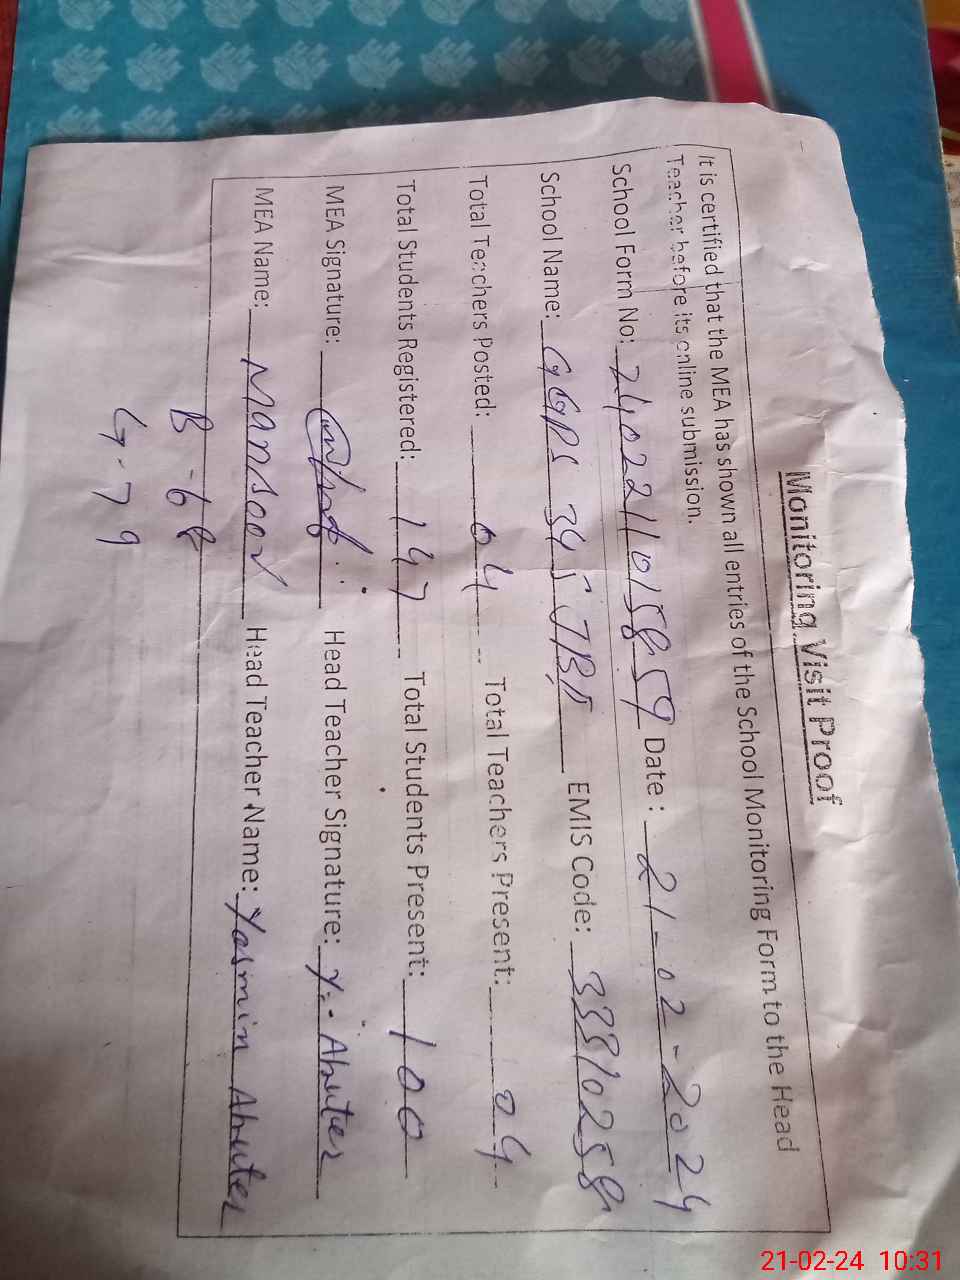 Monitoring Visit Proof
It is certified that the MEA has shown all entries of the School Monitoring Form to the Head
Teacher before its online submission.
School Form No: 2402211015859 Date: 21-02-2024
School Name: GGPS 345 JBI EMIS Code: 33310258
Total Teachers Posted: 04 Total Teachers Present: 04
Total Students Registered: 147 Total Students Present: 100
MEA Signature: Head Teacher Signature: Y. Akhter
MEA Name: Mansoor Head Teacher Name: Yasmin Akhter
B-68
G-79
21-02-24 10:31